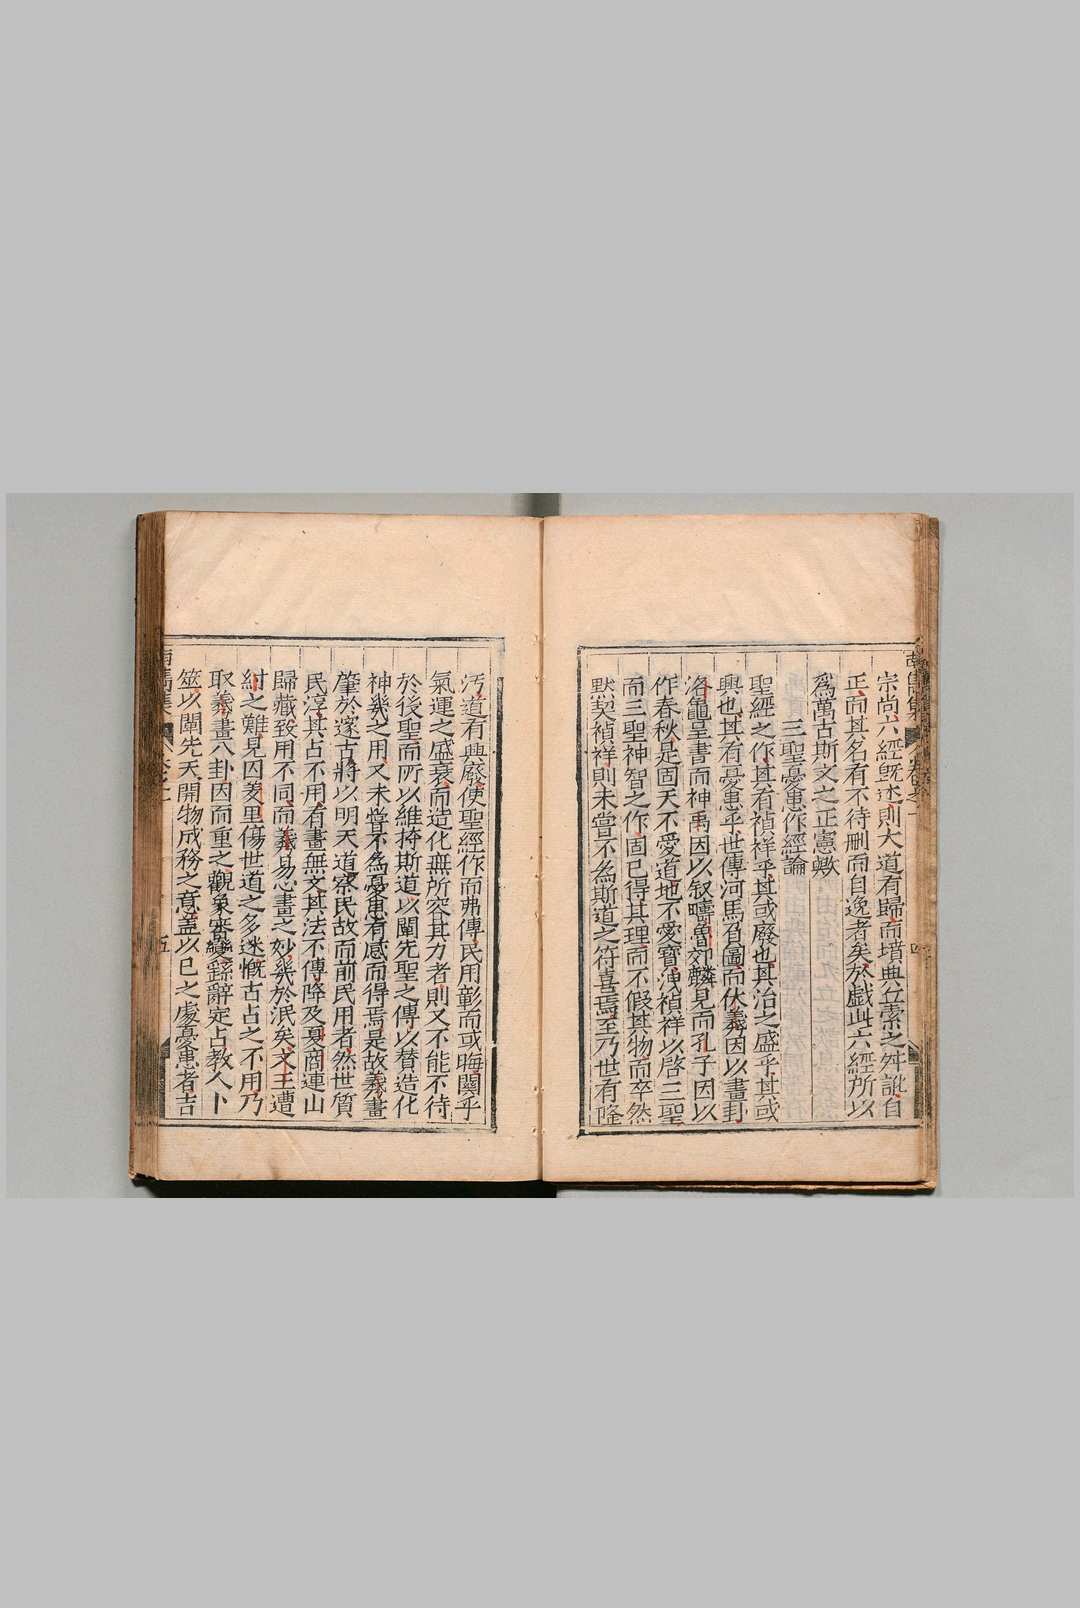 宗尚六經旣述則大道有歸而墳典丘索之舛訛自
正而其名有不待刪而自逸者矣於戲此六經所以
爲萬古斯文之正憲歟
三聖憂患作經論
聖經之作其有禎祥乎其或廢也其治之盛乎其或
興也其有憂患乎世傳河馬負圖而伏羲因以畫卦
洛龜呈書而神禹因以叙疇魯郊麟見而孔子因以
作春秋是固天不愛道地不愛寶洩禎祥以啓三聖
而三聖神智之作固已得其理而不假其物而卒然
默契禎祥則未嘗不爲斯道之符喜焉至乃世有隆
汚道有興廢使聖經作而弗傳民用彰而或晦關乎
氣運之盛衰而造化無所容其力者則又不能不待
於後聖而所以維持斯道以闡先聖之傳以賛造化
神幾之用又未嘗不爲憂患有感而得焉是故羲畫
肇於邃古將以明天道察民故而前民用者然世質
民淳其占不用有畫無文其法不傳降及夏商連山
歸藏致用不同而羲易心畫之妙幾於泯矣文王遭
紂之難見囚羑里傷世道之多迷慨古占之不用乃
取羲畫八卦因而重之觀象審變繇辭定占敎人卜
筮以闡先天開物成務之意盖以已之處憂患者吉
五